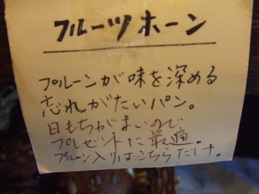 フルーツホーン
プルーンが味を深める
忘れがたいパン。
日もちがよいので
プレゼントに最適。
プルーン入りはこちらだけ。